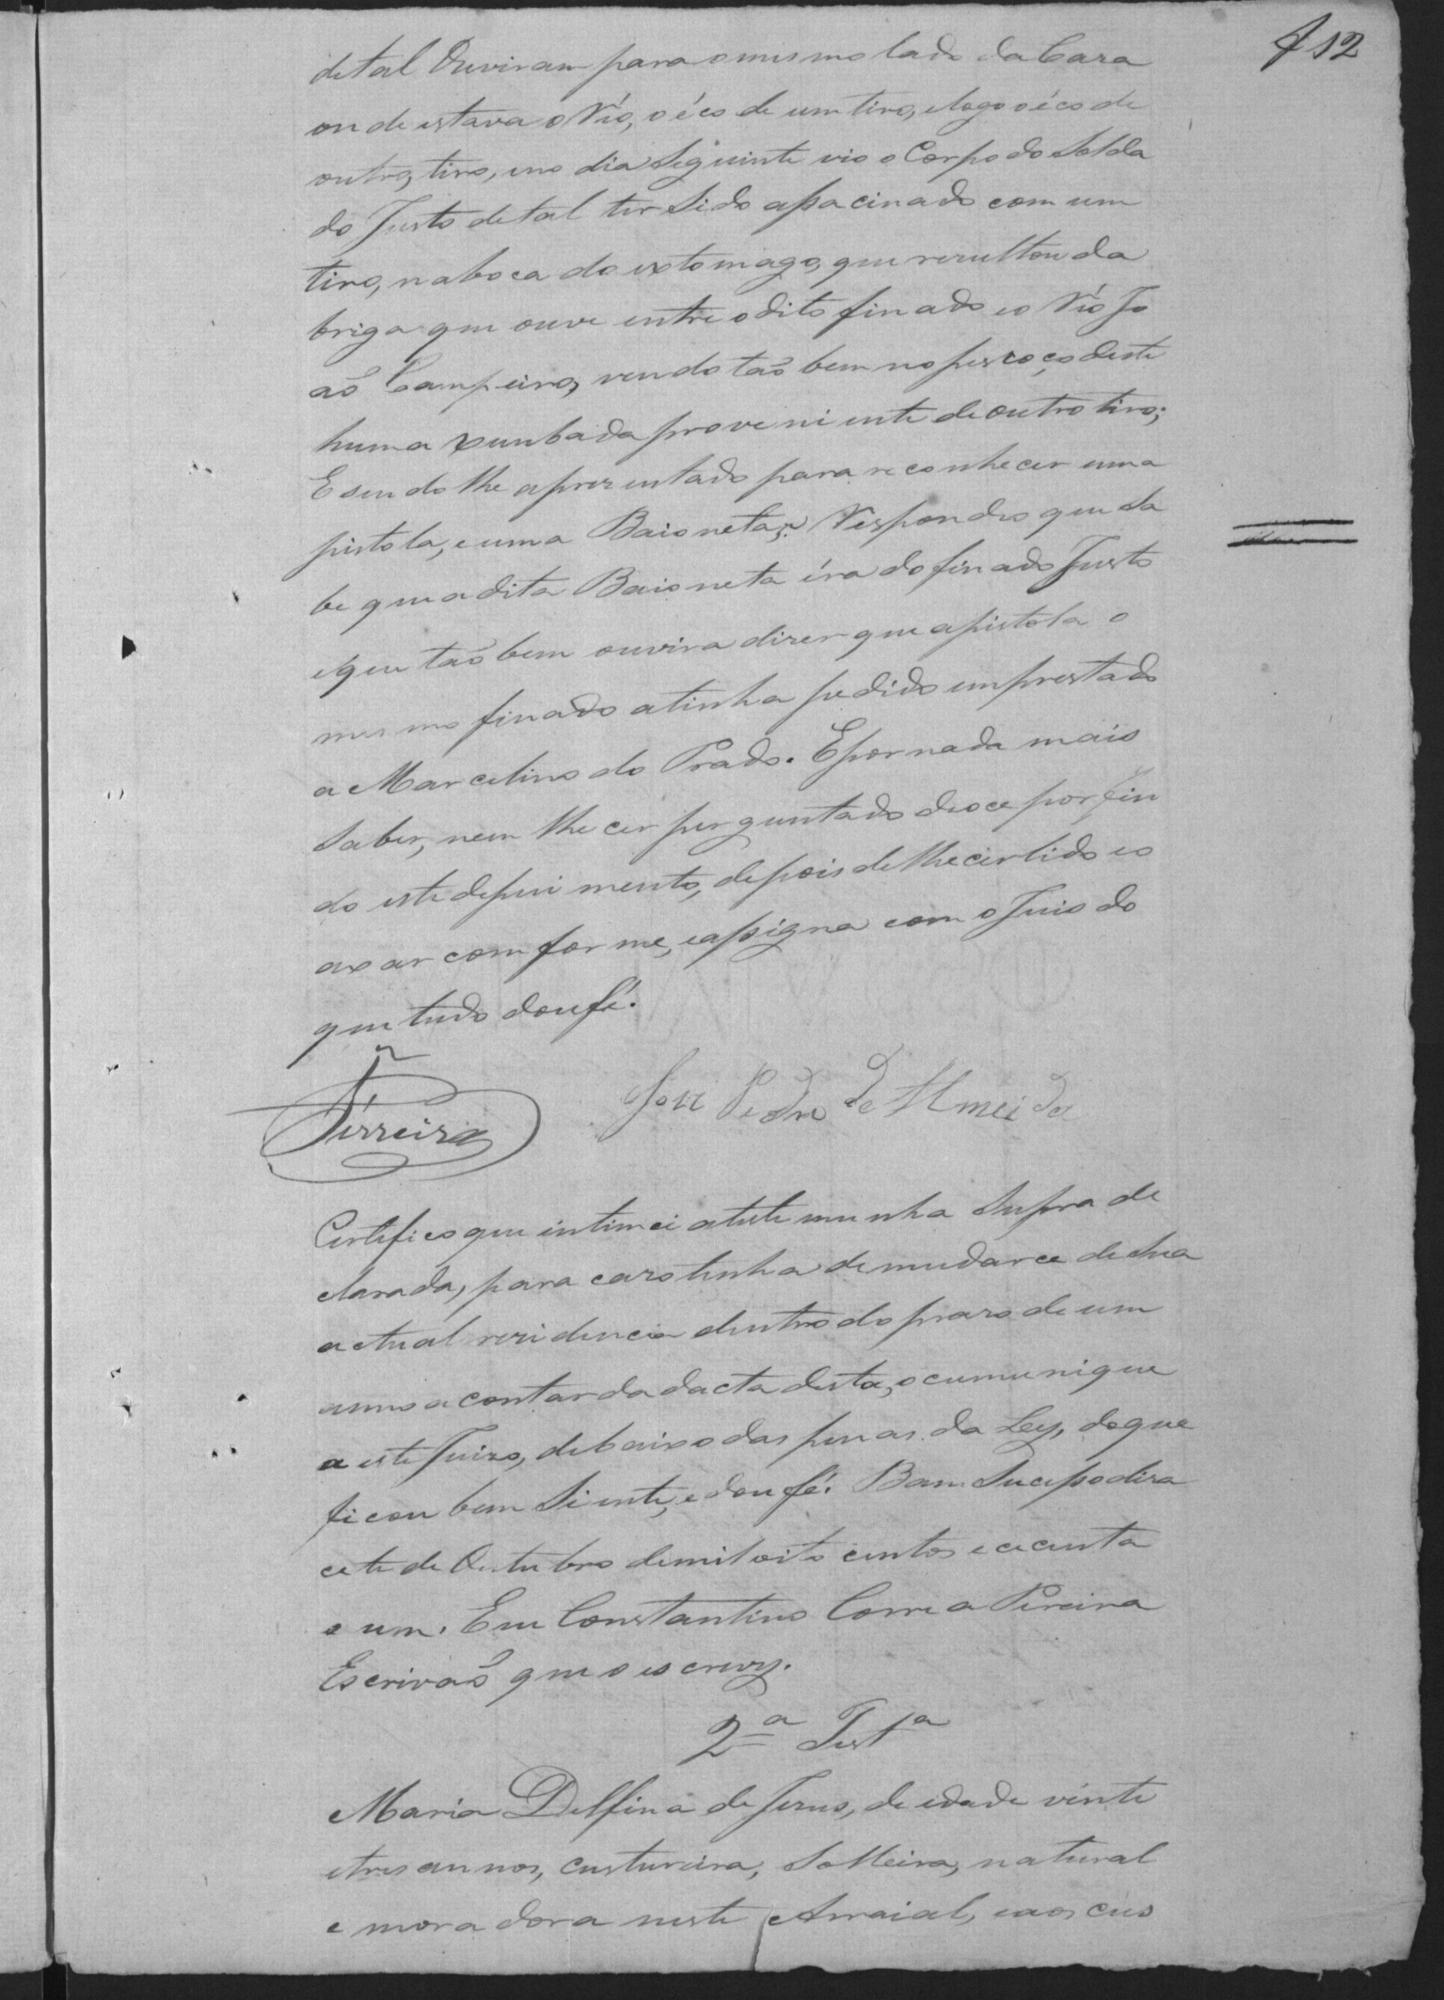 f 12
de tal Ouviram para o mesmo lado da Caza
onde estava o Réo, o éco de um tiro, e logo o éco de
outro tiro, e no dia Seguinte vio o Corpo do Solda
do Justo de tal ter Sido assacinado com um
tiro, na boca do estomago, que rezultou da
briga que ouve entre o dito finado e o Réo Jo
aõ Campeiro, vendo taõ bem no pescoço deste
huma xumbada proveniente de outro tiro;
E sendo lhe aprezentado para reconhecer uma
pistola, e uma Baioneta; Respondeo que Sa
be que a dita Baioneta éra do finado Justo
e que taõ bem ouvira dizer que a pistola o
mesmo finado a tinha pedido emprestado
a Marcelino do Prado. E por nada mais
Saber, nem lhe cer perguntado deoce por fin
do este depuimento, depois de lhe cer lido e o
axar comforme, e assigna com o Juis do
que tudo dou fé.
Ferreira
José Pedro de Almeida
Certifico que intimei a testemunha Supra de
clarada, para cazo tenha de mudarce de Sua
actual rezidencia dentro do prazo de um
anno a contar da dacta desta, o cumunique
a este Juizo, debaixo das penas da Ley, do que
ficou bem Siente, e dou fé. Bom Sucesso diza
cete de Outubro de mil oito centos e cecenta
e um. Eu Constantino Correa Pereira
Escrivaõ que o escrevy.
2ª Testª
Maria Delfina de Jezus, de idade vinte
e tres annos, custureira, Solteira, natural
e moradora neste Arraial, e aos cus